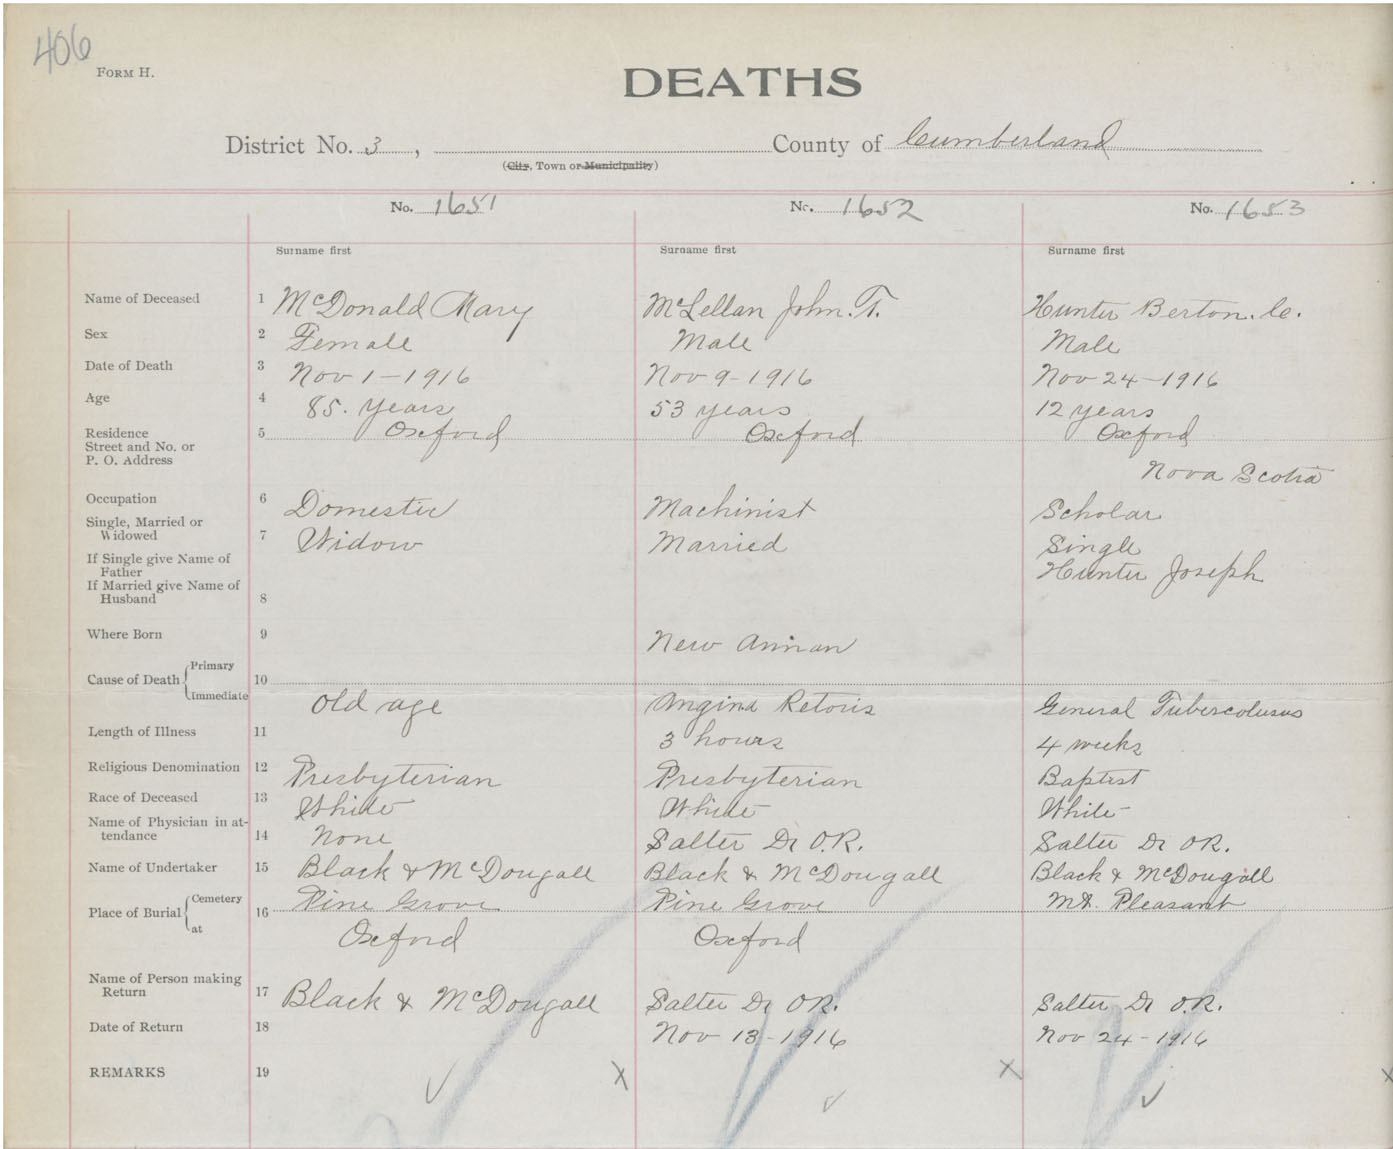 406
FORM H.
DEATHS
District No. 3, County of Cumberland
(City, Town or Municipality)
No. 1651 No. 1652 No. 1653
Surname first Surname first Surname first
Name of Deceased 1 McDonald Mary McLellan John. T. Hunter Berton. C.
Sex 2 Female Male Male
Date of Death 3 Nov 1-1916 Nov 9-1916 Nov 24-1916
Age 4 85. years 53 years 12 years
Residence 5 Oxford Oxford Oxford
Street and No. or
P. O. Address Nova Scotia
Occupation 6 Domestic Machinist Scholar
Single, Married or
Widowed 7 Widow Married Single
If Single give Name of
Father Hunter Joseph
If Married give Name of
Husband 8
Where Born 9 New Annan
Cause of Death Primary
10
Immediate Old age Angina Retoris General Tubercolusus
Length of Illness 11 3 hours 4 weeks
Religious Denomination 12 Presbyterian Presbyterian Baptist
Race of Deceased 13 White White White
Name of Physician in at-
tendance 14 None Salter Dr O.R. Salter Dr OR.
Name of Undertaker 15 Black & McDougall Black & McDougall Black & McDougall
Place of Burial Cemetery 16 Pine Grove Pine Grove Mt. Pleasant
at Oxford Oxford
Name of Person making
Return 17 Black & McDougall Salter Dr OR. Salter Dr O.R.
Date of Return 18 Nov 13-1916 Nov 24-1916
REMARKS 19 X X X